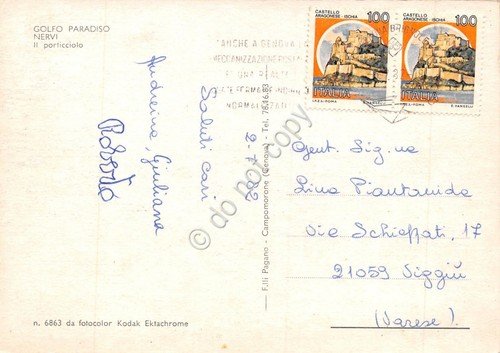 GOLFO PARADISO
NERVI
Il porticciolo
CASTELLO
ARAGONESE - ISCHIA
100
ITALIA
I.P.Z.S.-ROMA
E. VANGELLI
CASTELLO
ARAGONESE - ISCHIA
100
ITALIA
I.P.Z.S.-ROMA
E. VANGELLI
ANCHE A GENOVA
MECCANIZZAZIONE POSTALE
E' UNA REALTA'
NORMALIZZATI
2-7-82
Saluti cari
Andreina, Giuliana
Roberto
Gent. Sig.na
Lina Piantanida
Via Schieppati, 17
21059 Viggiù
(Varese)
F.lli Pagano - Campomorone (Genova) - Tel. 78.16.83
n. 6863 da fotocolor Kodak Ektachrome
© do not copy